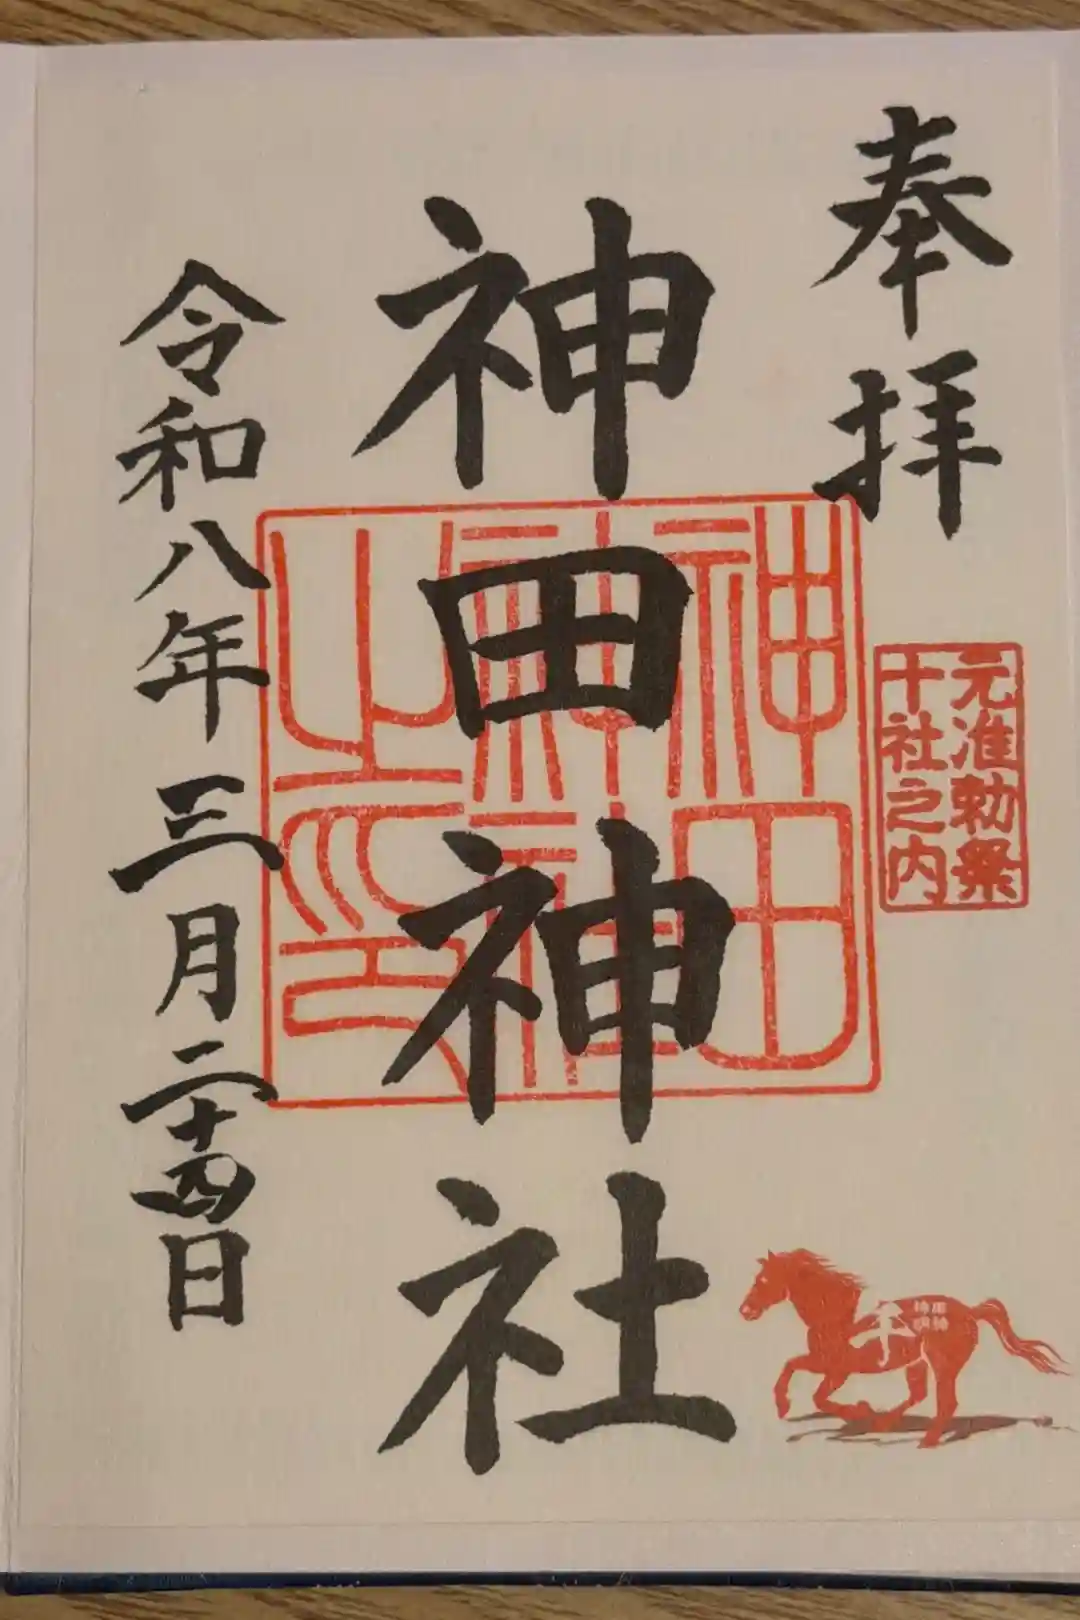 奉拝
元准勅祭
十社之内
神田神社
神田
神社
之印
令和八年三月二十四日
午